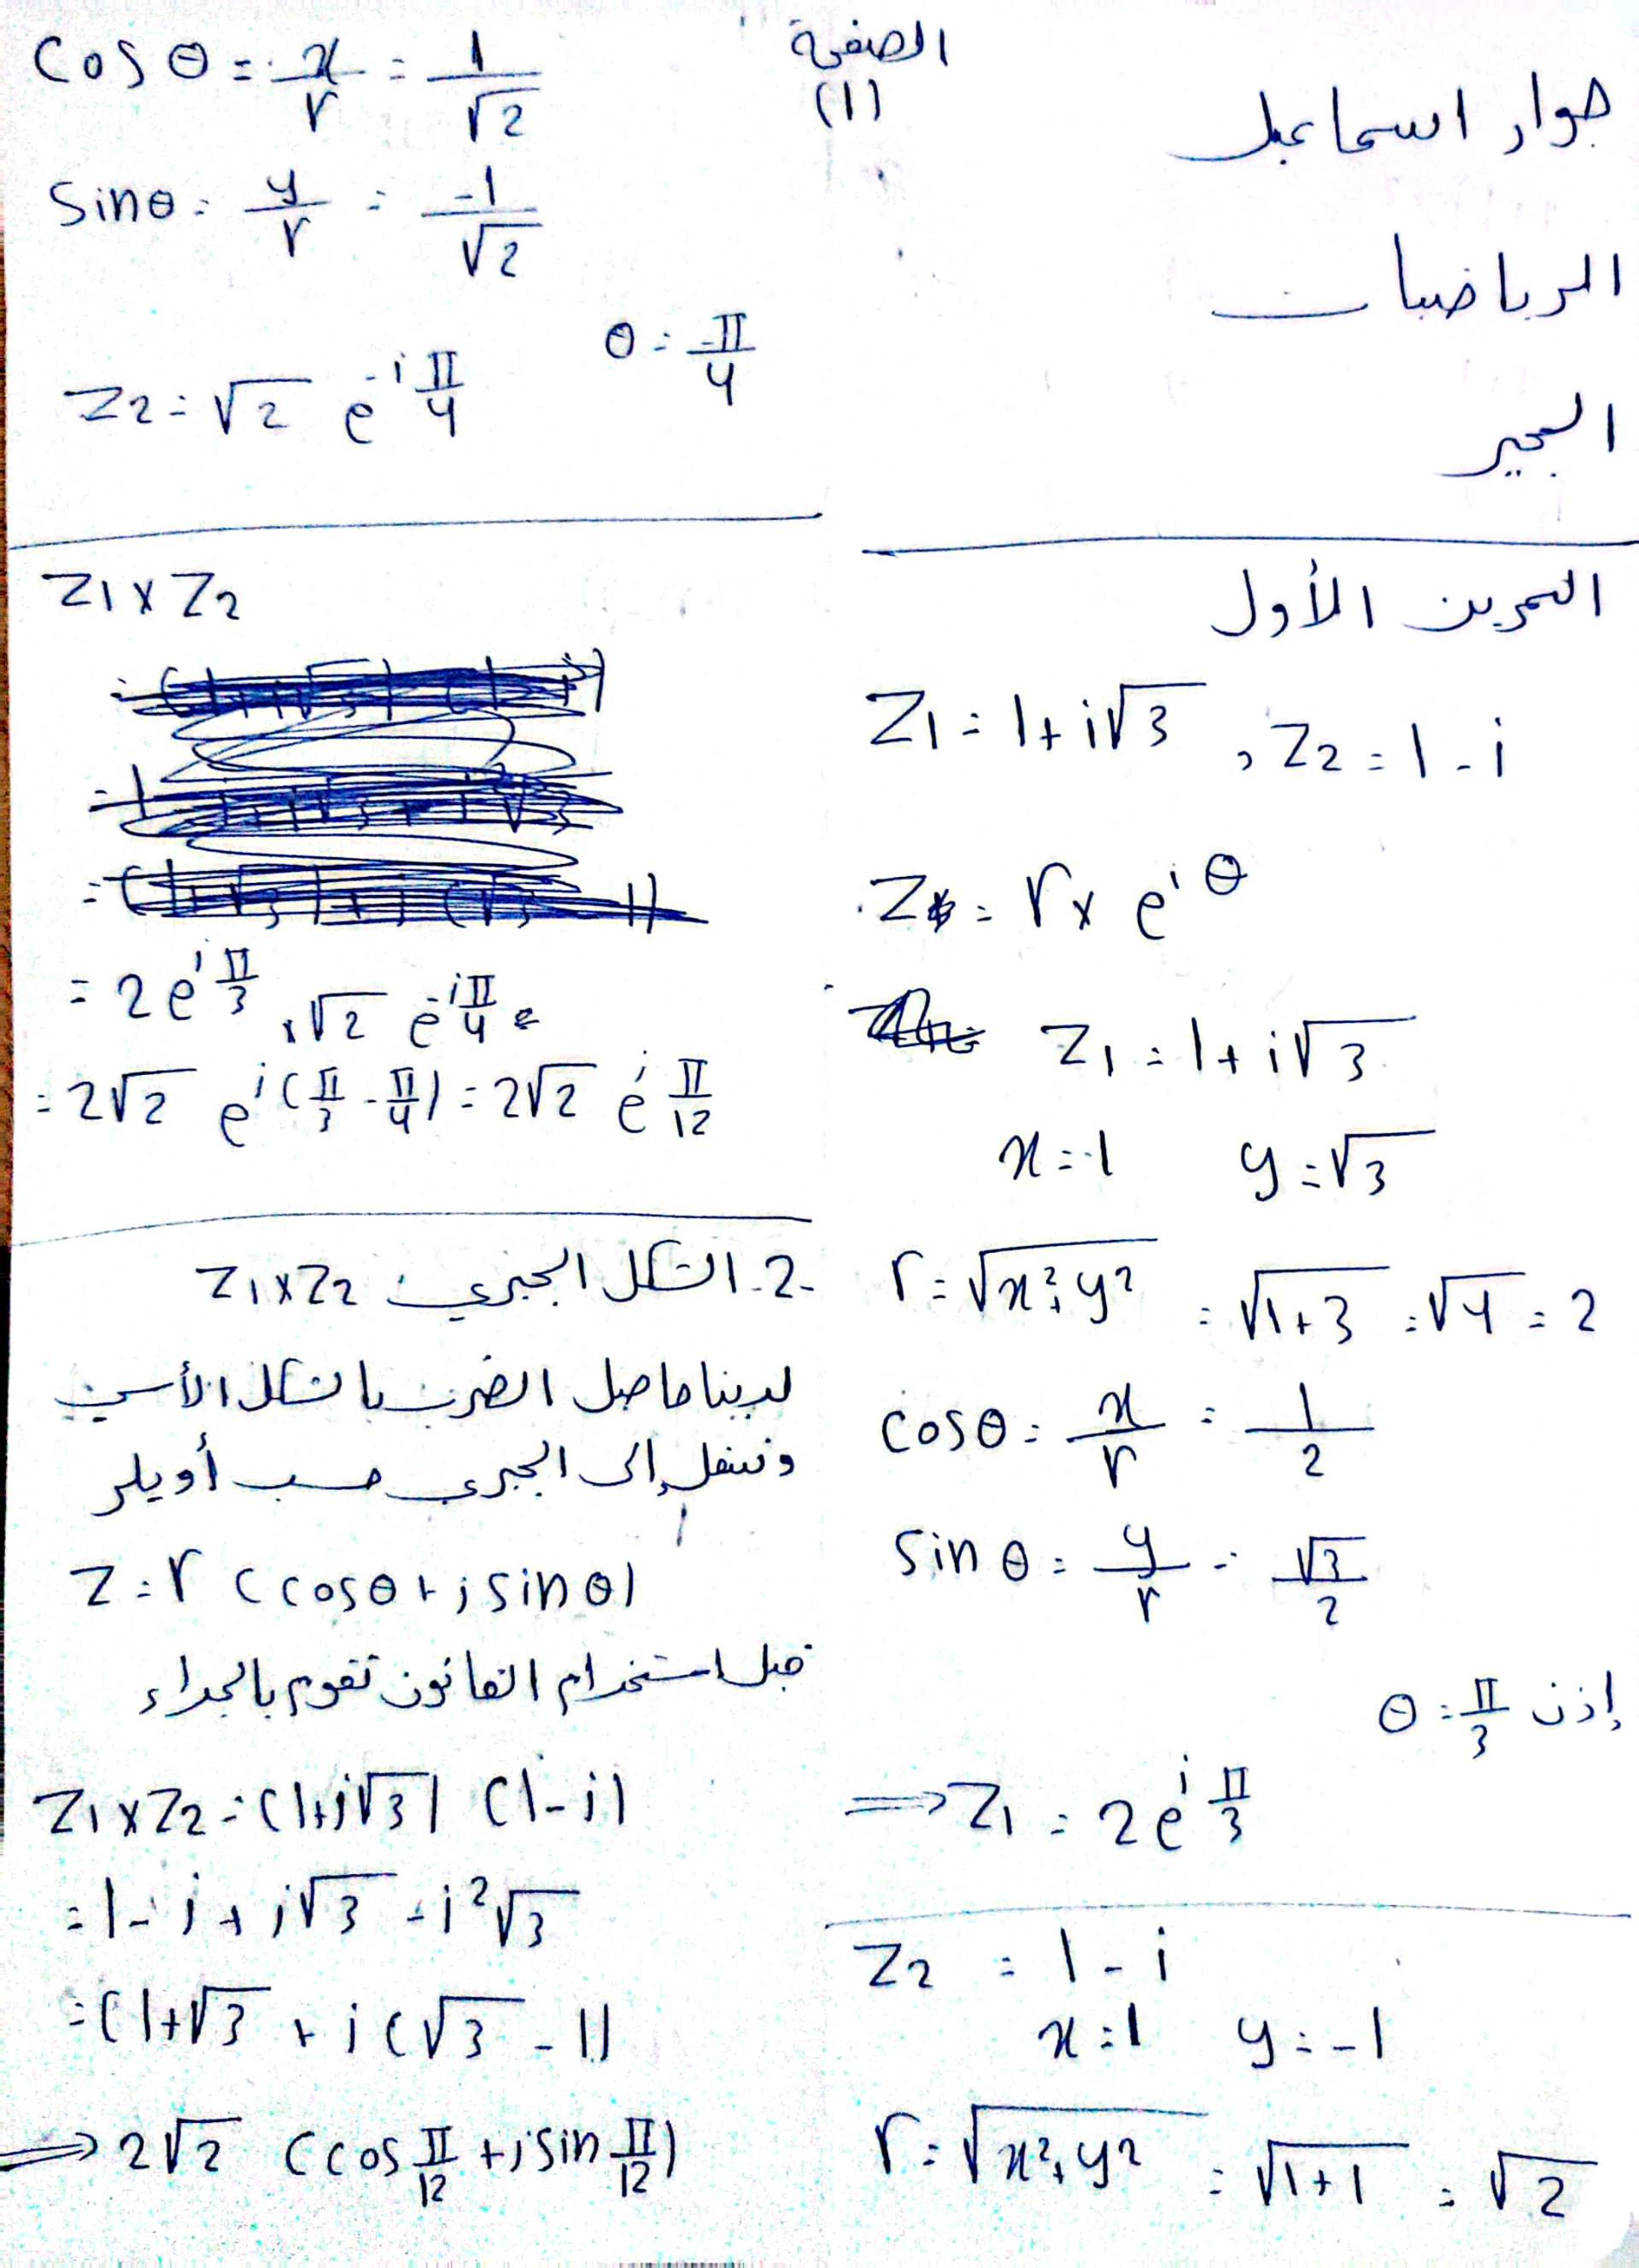 الصفحة
(1)
جواد اسماعيل
الرياضيات
الجبر
التمرين الأول
Z1 = 1+i√3 , Z2 = 1-i
Z = r x e^iθ
Z1 = 1+i√3
x=1 y=√3
r=√x²+y² = √1+3 = √4 = 2
cosθ = x/r = 1/2
sinθ = y/r = √3/2
إذن θ = π/3
⟹ Z1 = 2e^i π/3
Z2 = 1-i
x=1 y=-1
r=√x²+y² = √1+1 = √2
cosθ = x/r = 1/√2
sinθ = y/r = -1/√2
θ = -π/4
Z2 = √2 e^-i π/4
Z1 x Z2
= 2e^i π/3 x √2 e^-i π/4
= 2√2 e^i(π/3 - π/4) = 2√2 e^i π/12
2- الشكل الجبري Z1 x Z2
لدينا حاصل الضرب بالشكل الأسي
وننتقل إلى الجبري حسب أويلر
Z = r (cosθ + i sinθ)
قبل استخدام القانون نقوم بالجداء
Z1 x Z2 = (1+i√3) (1-i)
= 1-i+i√3 -i²√3
= (1+√3 + i(√3 -1)
⟹ 2√2 (cos π/12 + i sin π/12)